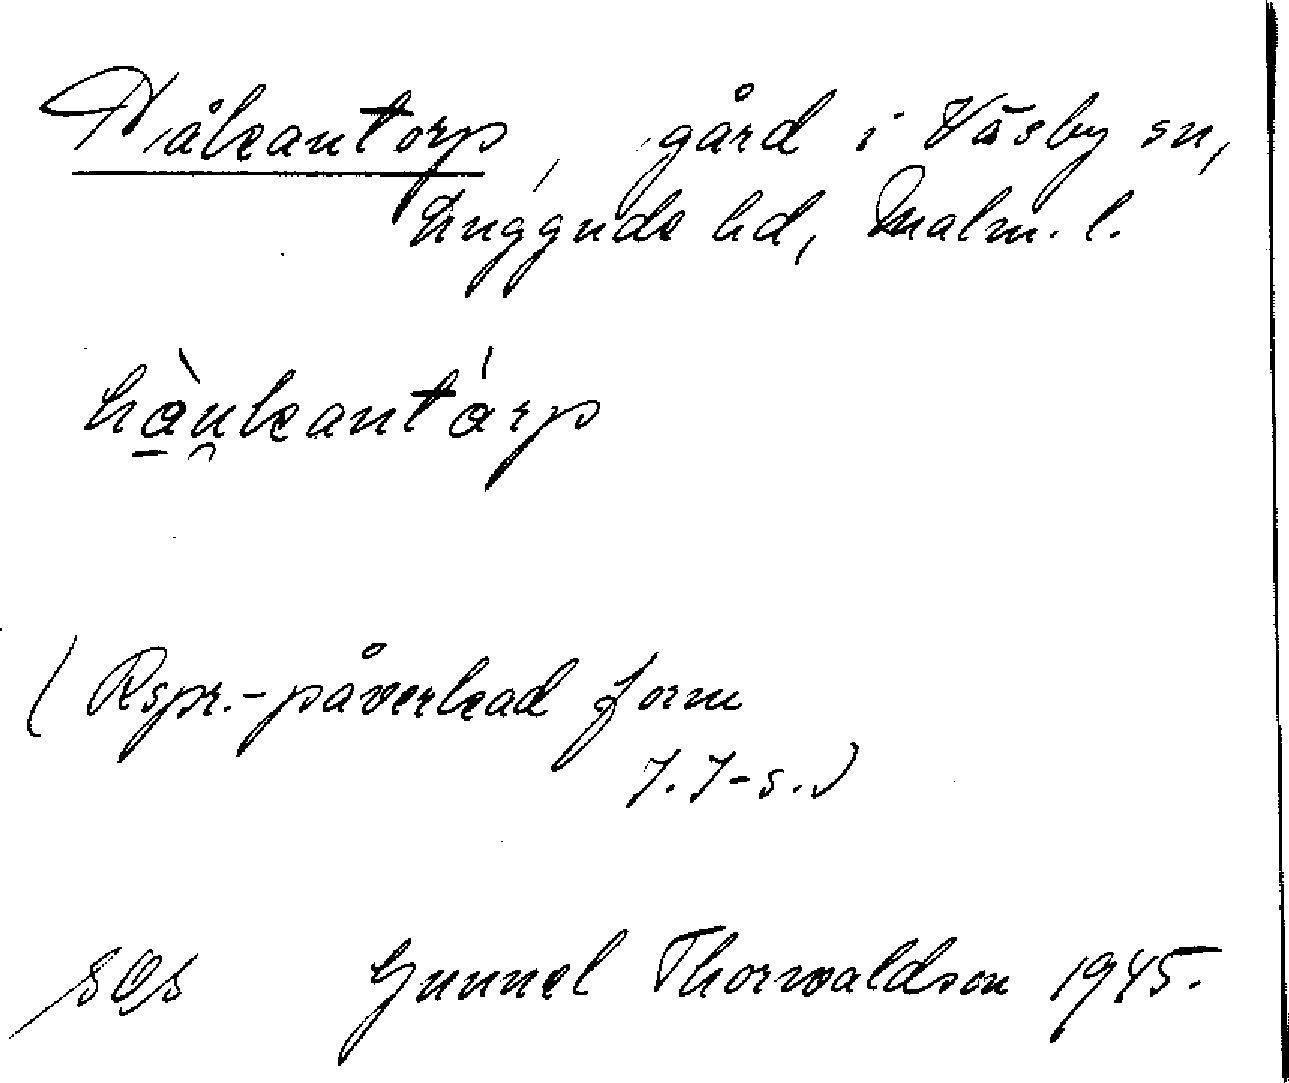 Håkantorp, gård i Väsby sn,
Luggude hd, Malm. l.
hàu̯kantárp
(Rspr.-påverkad form
J.J-s.)
SOS Gunnel Thorvaldson 1945.